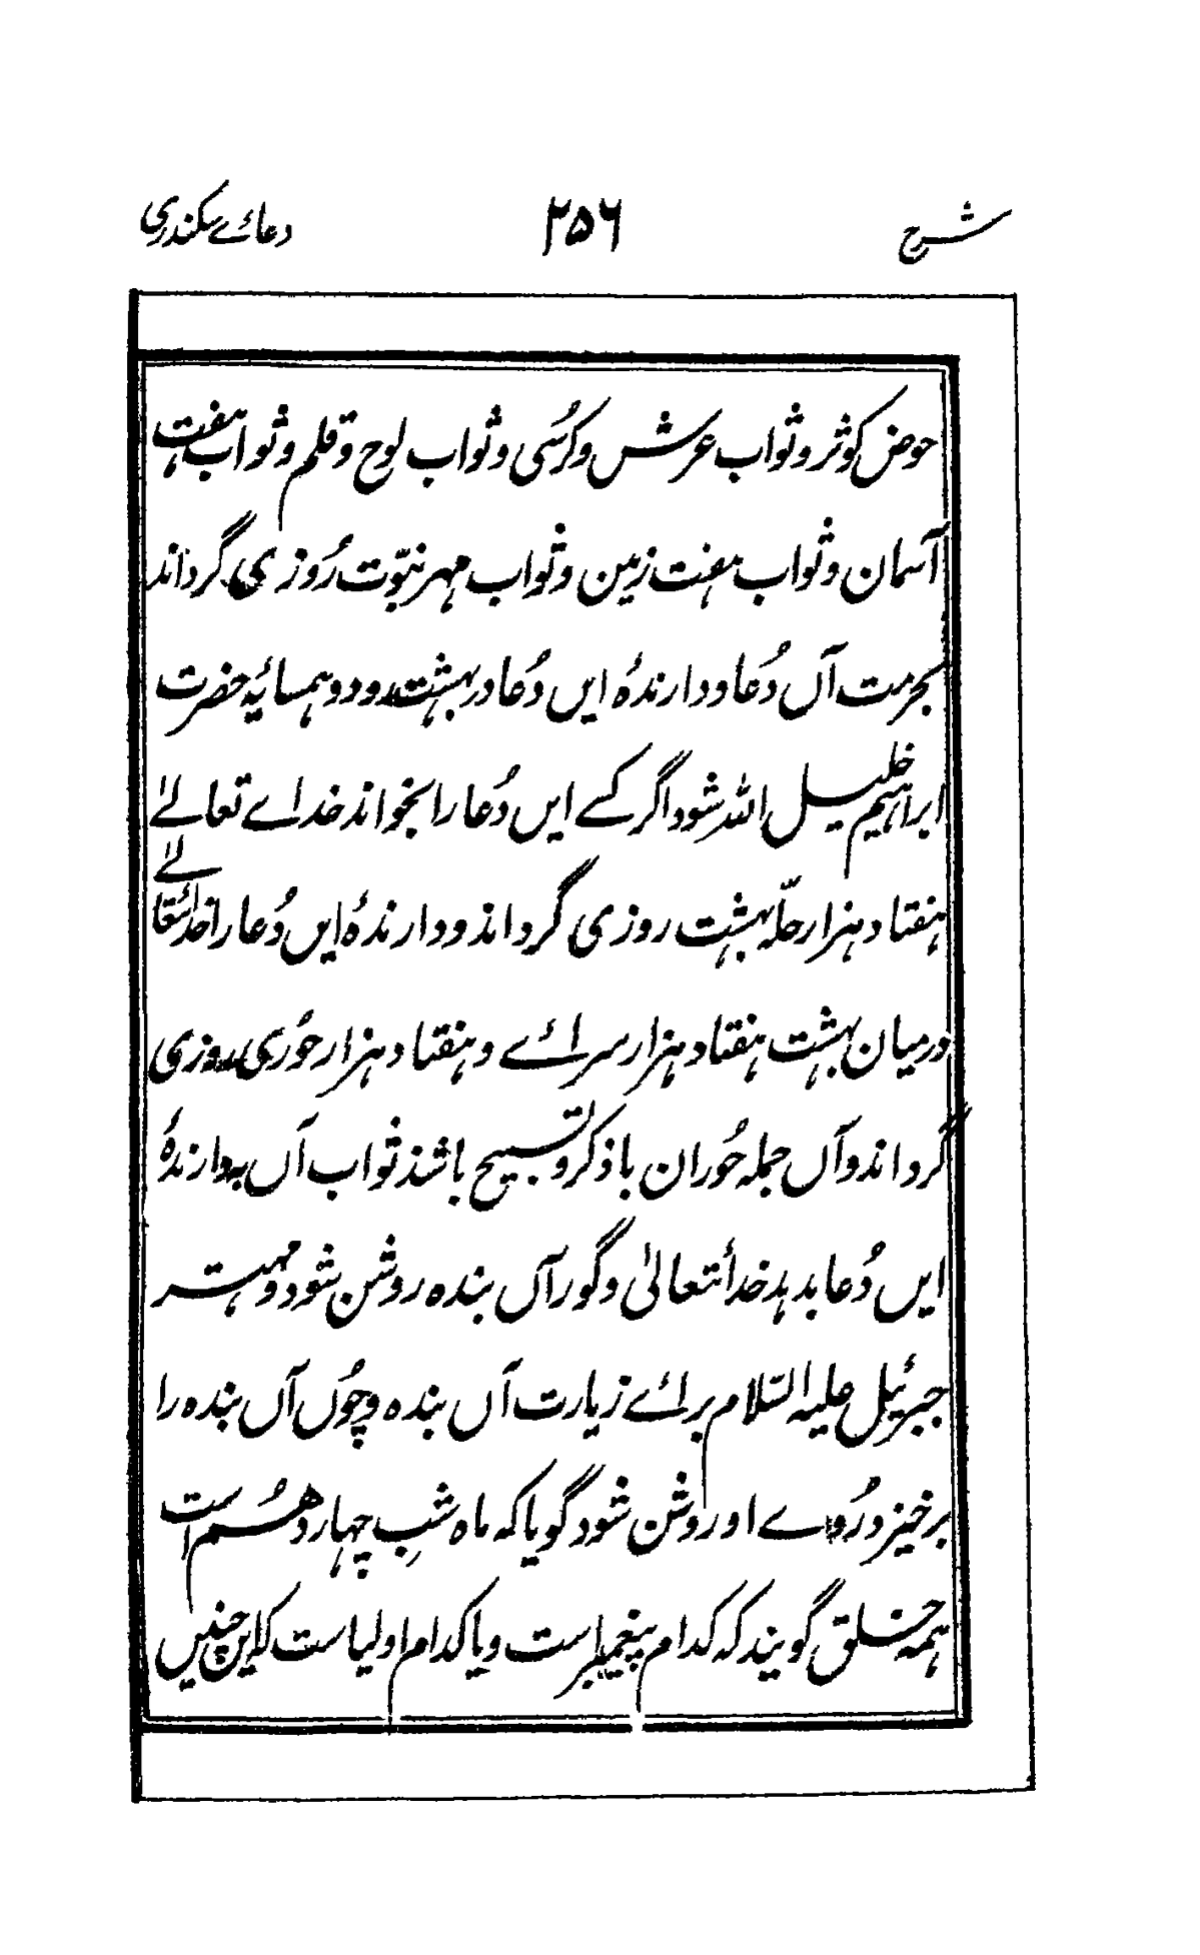 شرح ۲۵۶ دعائے سکندری
حوض کوثر و ثواب عرش و کرسی و ثواب لوح و قلم و ثواب ہفت
آسمان و ثواب ہفت زمین و ثواب مہر نبوّت رُوزی گرداند
بحرمت آں دُعا و دارندۂ ایں دُعا در بہشت رود و ہمسایۂ حضرت
ابراہیم خلیل اللہ شود اگر کسے ایں دُعا را بخواند خداے تعالےٰ
ہفتاد ہزار حلّہ بہشت روزی گرداند و دارندۂ ایں دُعا را خدائتعالےٰ
درمیان بہشت ہفتاد ہزار سرائے و ہفتاد ہزار حُوری روزی
گرداند و آں جملہ حُوران با ذکر و تسبیح باشند ثواب آں بدارندۂ
ایں دُعا بدہد خدائتعالیٰ و گور آں بندہ روشن شود و مہتر
جبرئیل علیہ السّلام برائے زیارت آں بندہ و چُوں آں بندہ را
برخیزد رُوے او روشن شود گویا کہ ماہ شبِ چہاردہُم است
ہمہ خلق گویند کہ کدام پیغمبر است و یا کدام اولیا است کہ ایں چنیں